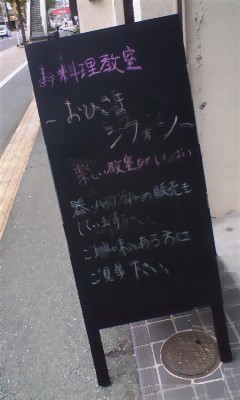 お料理教室
~おひさま
シフォン~
楽しい教室がいっぱい
の販売も
しています。
ご興味のある方は
ご見学下さい。